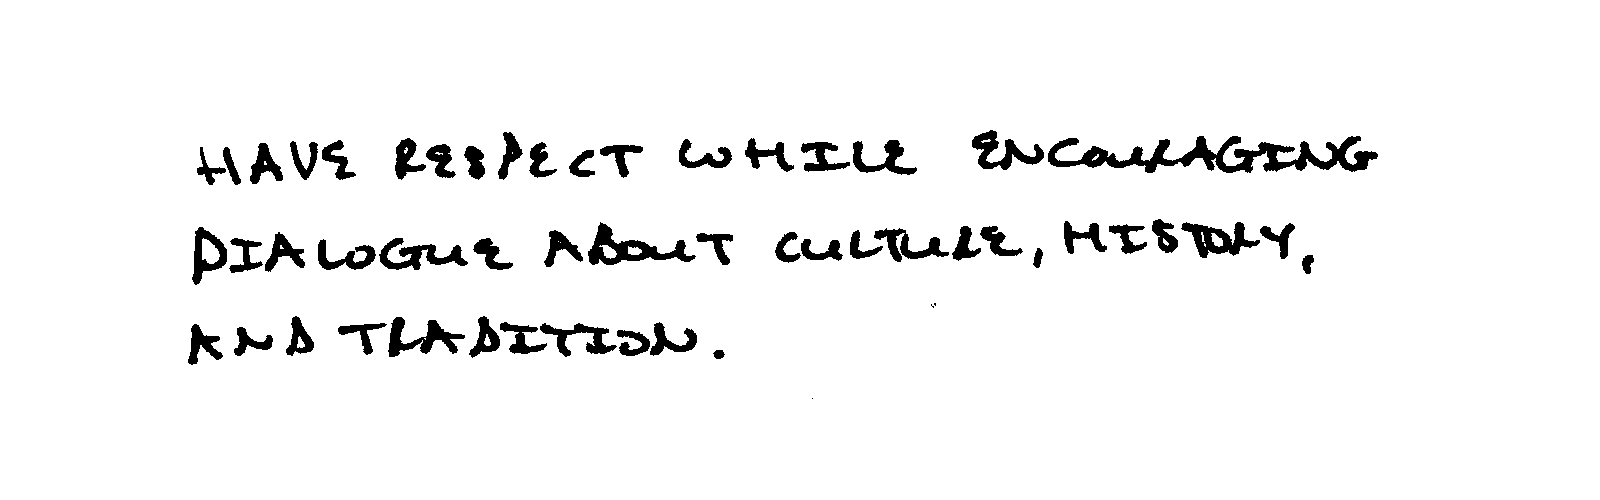 HAVE RESPECT WHILE ENCOURAGING
DIALOGUE ABOUT CULTURE, HISTORY,
AND TRADITION.